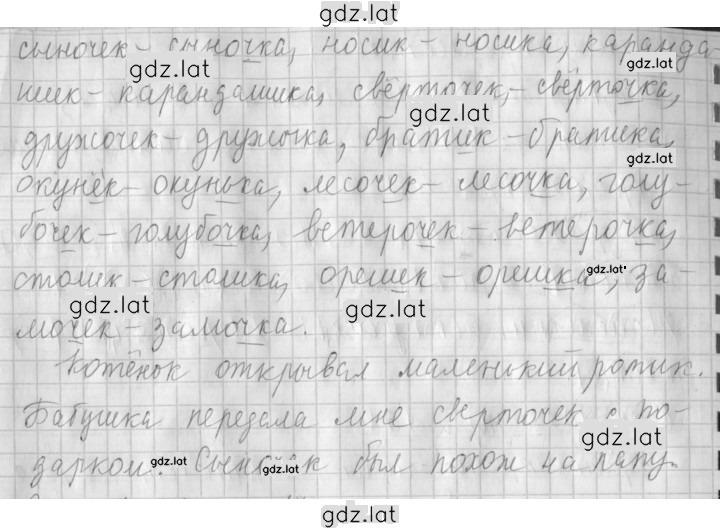 gdz.lat
сыночек - сыночка, носик - носика, каранда
gdz.lat
шик - карандашика, свёрточек, - свёрточка,
gdz.lat
дружочек - дружочка, братик - братика,
gdz.lat
окунёк - окунька, лесочек - лесочка, голу-
бочек - голубочка, ветерочек - ветерочка,
столик - столика, орешек - орешка, за-
gdz.lat
gdz.lat gdz.lat
мочек - замочка.
Котёнок открывал маленький ротик.
Бабушка передала мне сверточек с по-
gdz.lat
дарком. Сыночек был похож на папу.
gdz.lat gdz.lat
gdz.lat